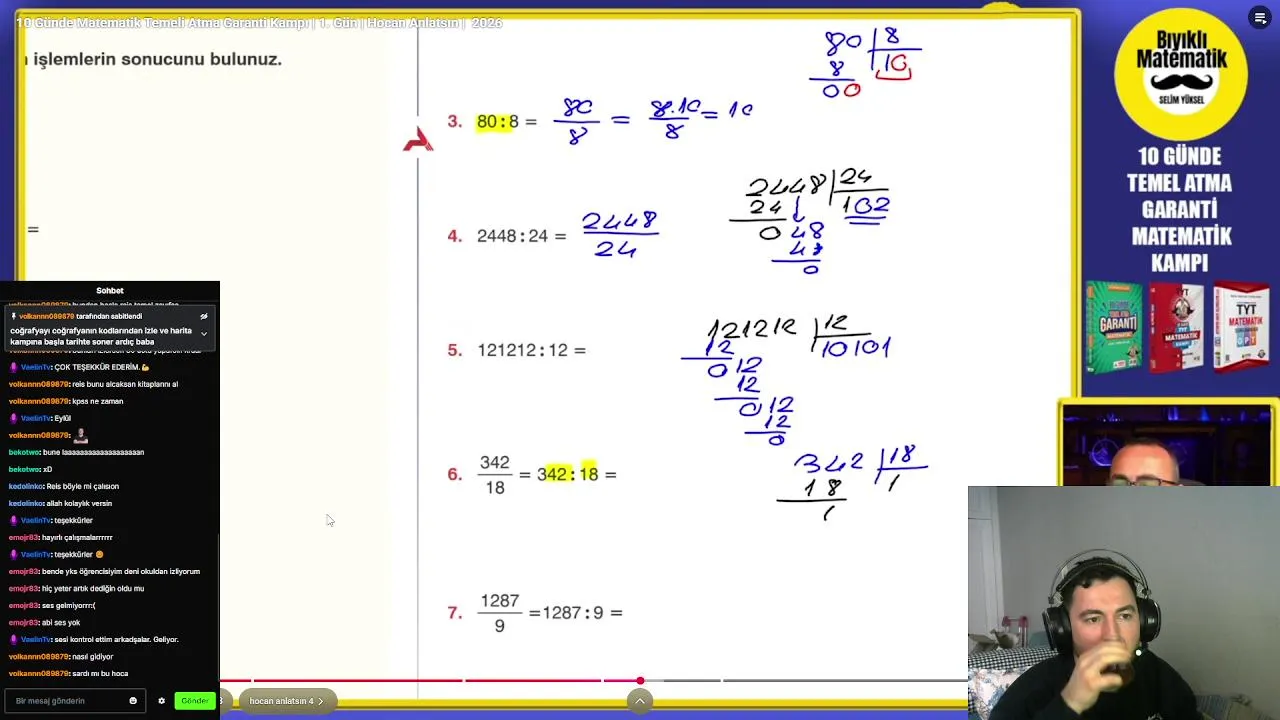 10 Günde Matematik Temeli Atma Garanti Kampı | 1. Gün | Hocan Anlatsın | 2026
işlemlerin sonucunu bulunuz.
=
3. 80:8 = 80/8 = 8.10/8 = 10
80 8
8 10
00
4. 2448:24 = 2448/24
2448 24
24 102
0 48
48
0
5. 121212:12 =
121212 12
12 10101
0 12
12
0 12
12
0
6. 342/18 = 342:18 =
342 18
18 1
1
7. 1287/9 =1287:9 =
Bıyıklı
Matematik
SELİM YÜKSEL
10 GÜNDE
TEMEL ATMA
GARANTİ
MATEMATİK
KAMPI
GARANTİ
TYT
MATEMATİK
TYT
MATEMATİK
Sohbet
volkannn089879 tarafından sabitlendi
coğrafyayı coğrafyanın kodlarından izle ve harita
kampına başla tarihte soner ardıç baba
VaelinTv: ÇOK TEŞEKKÜR EDERİM.
volkannn089879: reis bunu alcaksan kitaplarını al
volkannn089879: kpss ne zaman
VaelinTv: Eylül
volkannn089879:
bekotwo: bune laaaaaaaaaaaaaaaaaaan
bekotwo: xD
kedolinko: Reis böyle mi çalısıon
kedolinko: allah kolaylık versin
VaelinTv: teşekkürler
emojr83: hayırlı çalışmalarrrrrr
VaelinTv: teşekkürler
emojr83: bende yks öğrencisiyim deni okuldan izliyorum
emojr83: hiç yeter artık dediğin oldu mu
emojr83: ses gelmiyorrr:(
emojr83: abi ses yok
VaelinTv: sesi kontrol ettim arkadşalar. Geliyor.
volkannn089879: nasıl gidiyor
volkannn089879: sardı mı bu hoca
Bir mesaj gönderin
Gönder
hocan anlatsın 4